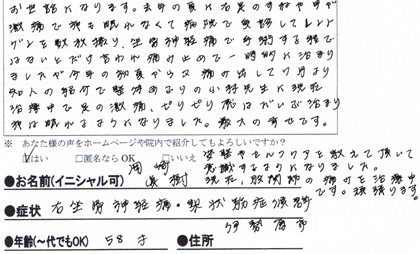 お世話になります。去年の夏に右足のすねや甲が
激痛で夜も眠れなくて病院で受診してレント
ゲンを数枚撮り、坐骨神経痛で手術する程で
はないとだけ言われ痛み止めで一時的に治まり
ましたが今年の初夏から又痛み出して7月より
知人の紹介で整体あまりの小林先生に現在
治療中で足の激痛、ぴりぴり感はだいぶ治まり
夜は眠れるようになりました。
※ あなた様の声をホームページや院内で紹介してもよろしいですか？
☑はい □匿名なら OK □いいえ
姿勢やセルフケアを教えて頂いて
意識するようになりました。
現在、股関節の痛みを治療中
です。頑張ります。
●お名前(イニシャル可)
●症状 右坐骨神経痛・梨状筋症候群
●年齢(～代でもOK) 58才 ●住所 伊勢原市